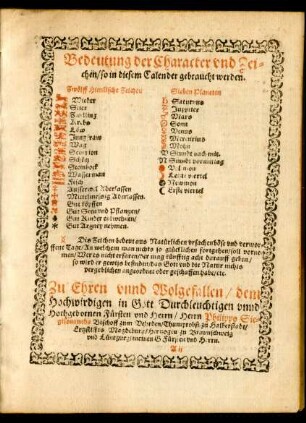 Bedeutung der Character vnd Zei-
chen/so in diesem Calender gebraucht werden.
Zwölff Himlische Zeichen
Wieder
Stier
Zwilling
Krebs
Löw
Jungfraw
Wag
Scorpion
Schütz
Steinbock
Wasserman
Visch
Ausserwel Aderlassen
Mittelmessig Aderlassen.
Gut köpffen
Gut Seen vnd Pflantzen/
Gut Kinder entwehnen/
Gut Artzney nehmen.
Sieben Planeten
Saturnus
Juppiter
Mars
Sonn
Venus
Mercurius
Mohn
V Stund nach mit.
N Stund vormittag
Vol mon
Letzte viertel
Newmon
Erste viertel
Dis Zeichen bedeut aus Natürlichen vrsachen böß vnd verworf-
fene Tage/ An welchem man nichts zu glücklichen fortgehen/soll vorneh-
men/ Wer es nicht erfaren/der mag künfftig acht darauff geben/
so wird er gewiss befinden/das Gott vnd die Natur nichts
vergeblichen angeordnet oder geschaffen habe etc.
Zu Ehren vnnd Wolgefallen/ dem
Hochwirdigen in Gott Durchleuchtigen vnnd
Hochgebornen Fürsten vnd Herrn/ Herrn Philippo Si-
gismundo Bischoff zum Vehrden/Thumprobst zu Halberstadt/
Hertzogen zu Braunschweig
vnd Lüneburg/meinem G Fürsten vnd Herrn.
A ij